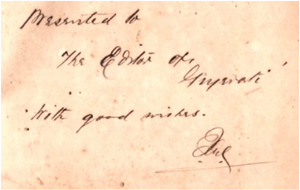 Presented to
The Editor of
Gujrati
With good wishes.